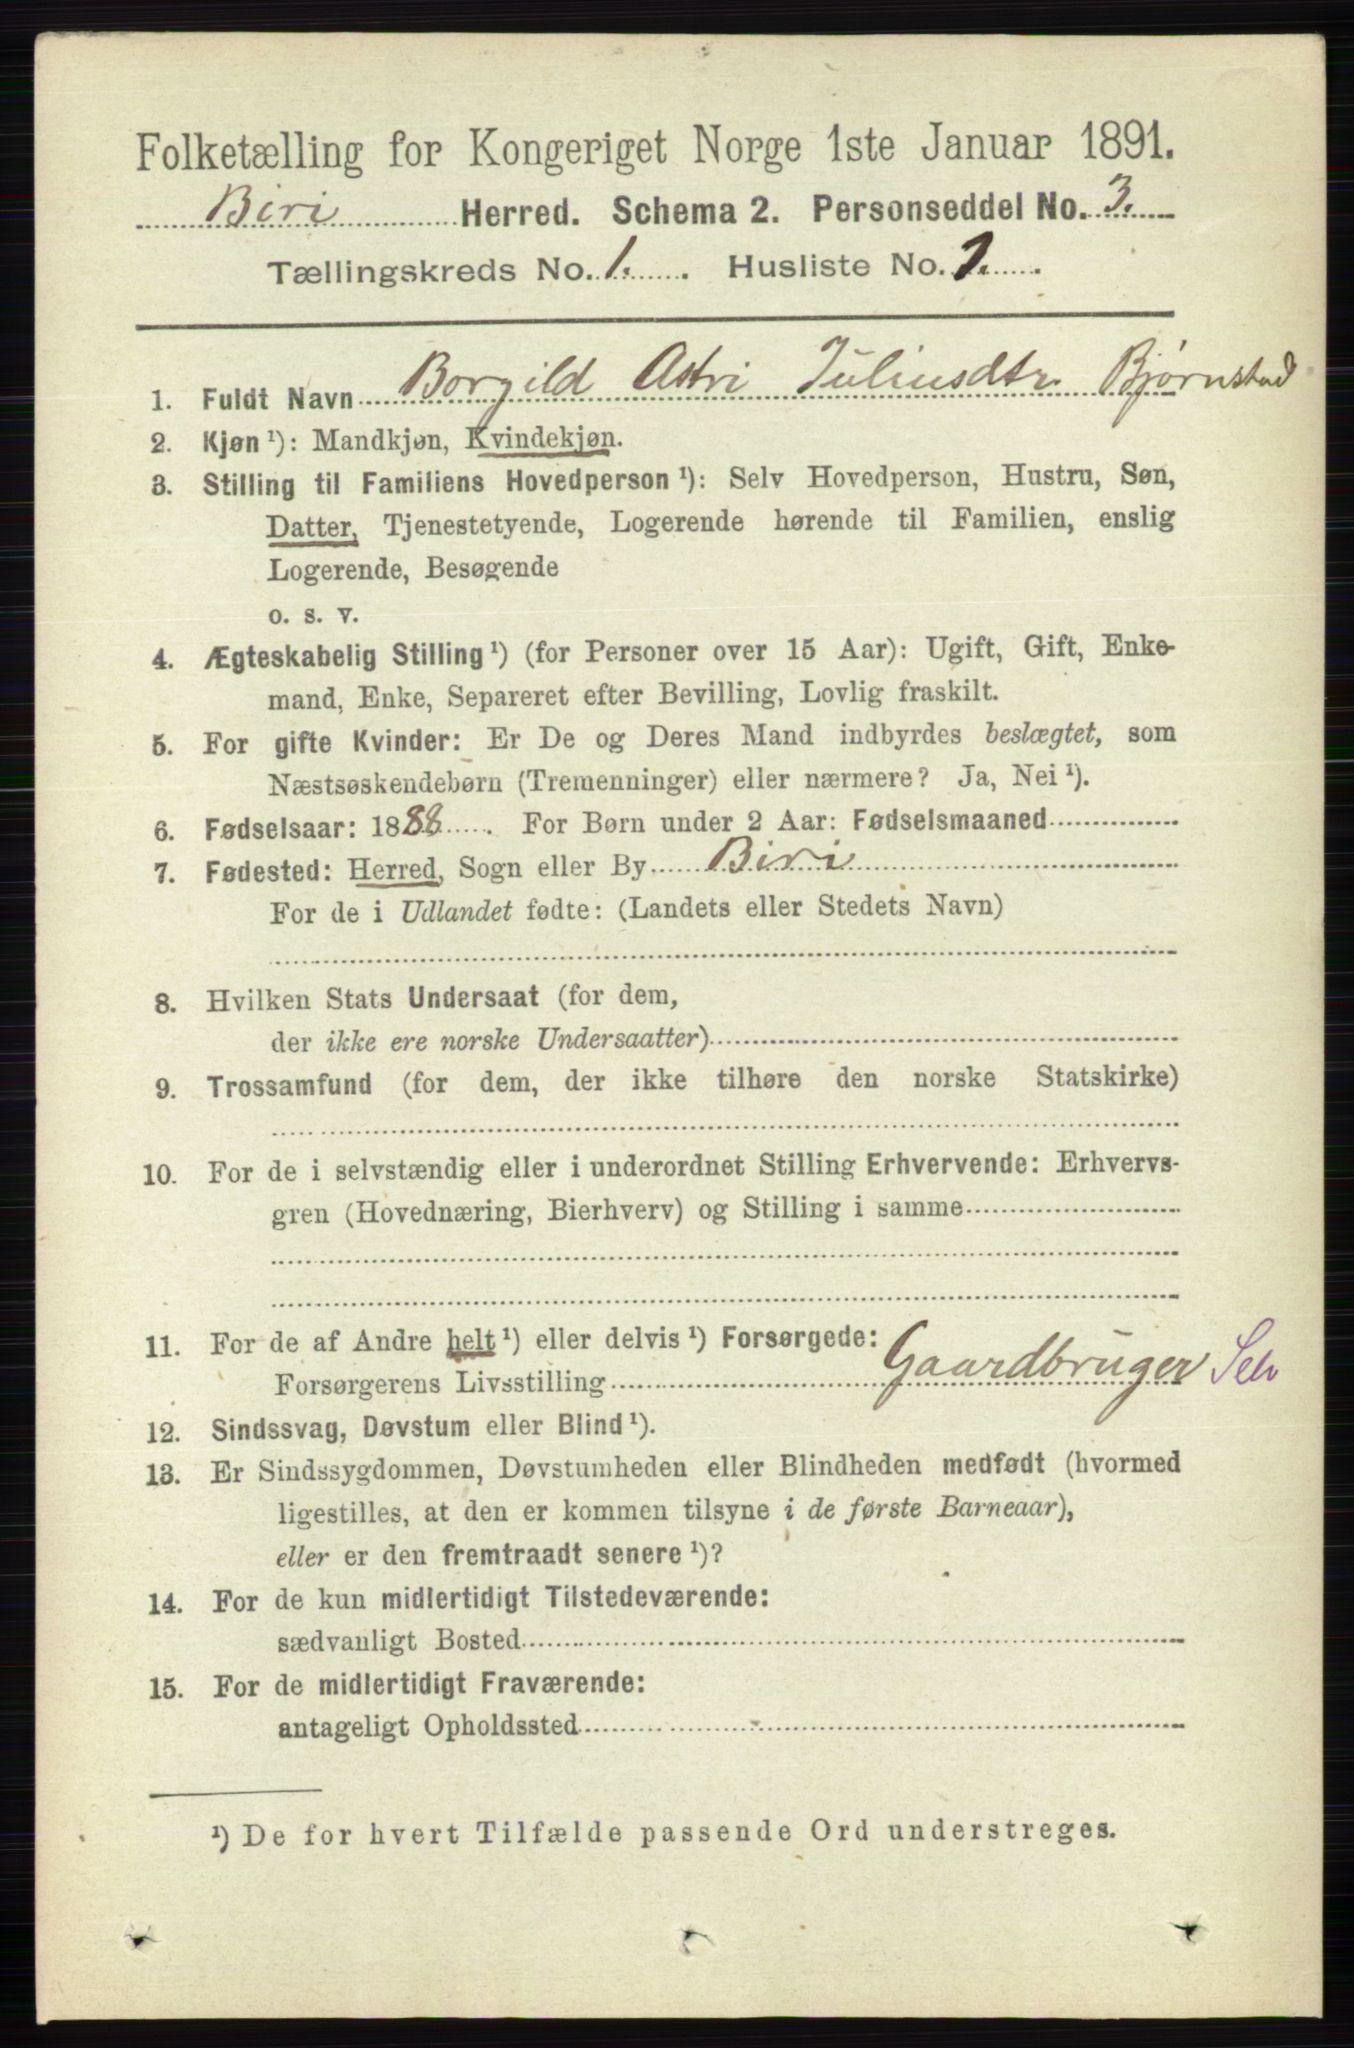 Folketælling for Kongeriget Norge 1ste Januar 1891.
Biri Herred. Schema 2. Personseddel No. 3.
Tællingskreds No. 1. Husliste No. 1.
1. Fuldt Navn Borgild Astri Juliusdtr. Bjørnstad
2. Kjøn ¹): Mandkjøn, Kvindekjøn.
3. Stilling til Familiens Hovedperson ¹): Selv Hovedperson, Hustru, Søn,
Datter, Tjenestetyende, Logerende hørende til Familien, enslig
Logerende, Besøgende
o. s. v.
4. Ægteskabelig Stilling ¹) (for Personer over 15 Aar): Ugift, Gift, Enke-
mand, Enke, Separeret efter Bevilling, Lovlig fraskilt.
5. For gifte Kvinder: Er De og Deres Mand indbyrdes beslægtet, som
Næstsøskendebørn (Tremenninger) eller nærmere? Ja, Nei ¹).
6. Fødselsaar: 1888. For Børn under 2 Aar: Fødselsmaaned
7. Fødested: Herred, Sogn eller By Biri
For de i Udlandet fødte: (Landets eller Stedets Navn)
8. Hvilken Stats Undersaat (for dem,
der ikke ere norske Undersaatter)
9. Trossamfund (for dem, der ikke tilhøre den norske Statskirke)
10. For de i selvstændig eller i underordnet Stilling Erhvervende: Erhvervs-
gren (Hovednæring, Bierhverv) og Stilling i samme
11. For de af Andre helt ¹) eller delvis ¹) Forsørgede:
Forsørgerens Livsstilling Gaardbruger Selv
12. Sindssvag, Døvstum eller Blind ¹).
13. Er Sindssygdommen, Døvstumheden eller Blindheden medfødt (hvormed
ligestilles, at den er kommen tilsyne i de første Barneaar),
eller er den fremtraadt senere ¹)?
14. For de kun midlertidigt Tilstedeværende:
sædvanligt Bosted
15. For de midlertidigt Fraværende:
antageligt Opholdssted
¹) De for hvert Tilfælde passende Ord understreges.